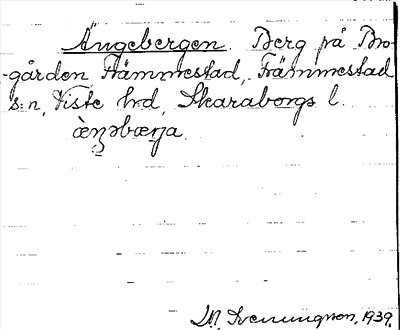 Ängebergen. Berg på Bro-
gården, Främmestad, Främmestad
s:n, Viste hrd, Skaraborgs l.
1939.